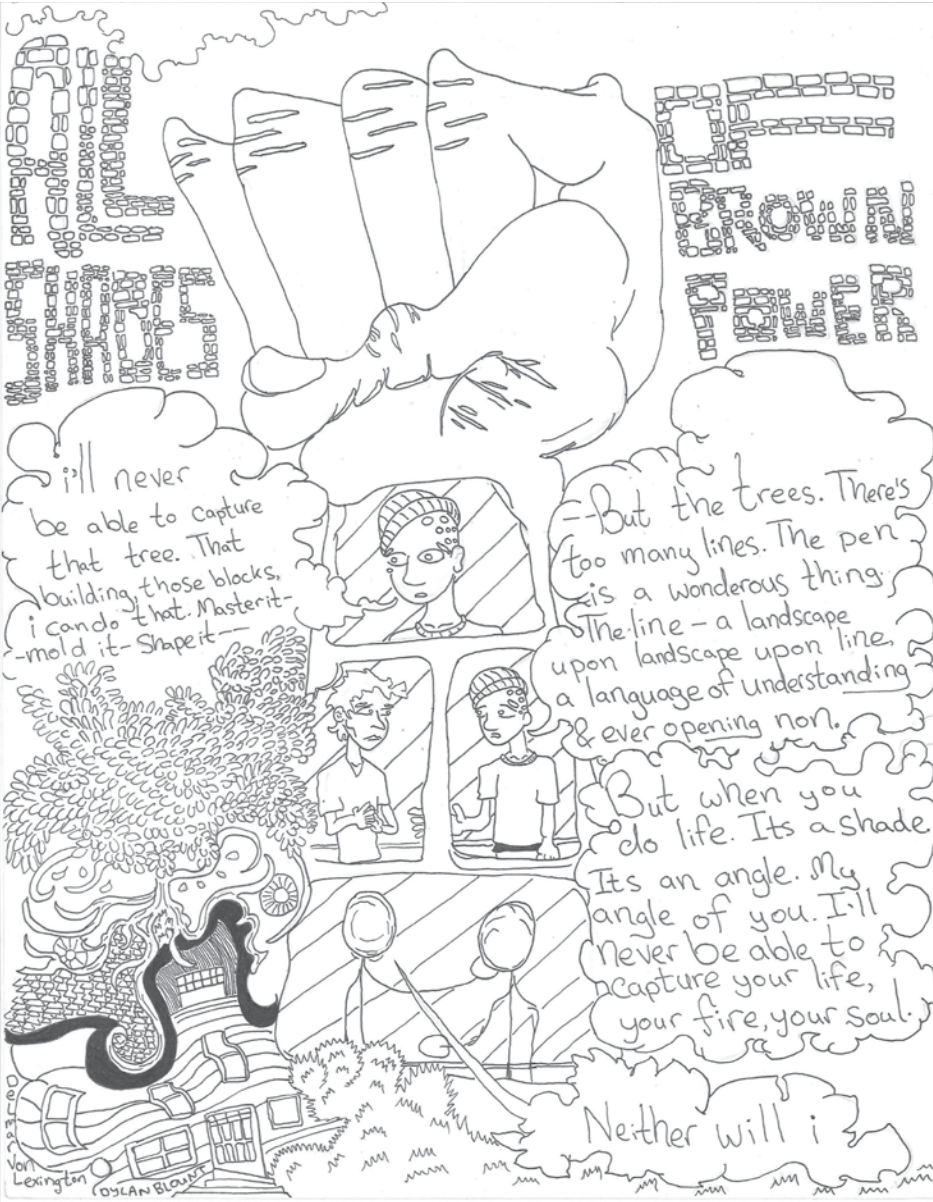 ALL
SHADES
OF
BROWN
POWER
i'll never
be able to capture
that tree. That
building, those blocks,
i can do that. Master it-
-mold it- Shape it--
--But the trees. There's
too many lines. The pen
is a wonderous thing.
The line - a landscape
upon landscape upon line,
a language of understanding
& ever opening non.
But when you
do life. Its a shade
Its an angle. My
angle of you. I'll
never be able to
capture your life,
your fire, your soul.
Neither will i
Von
Lexington
DYLAN BLOUNT